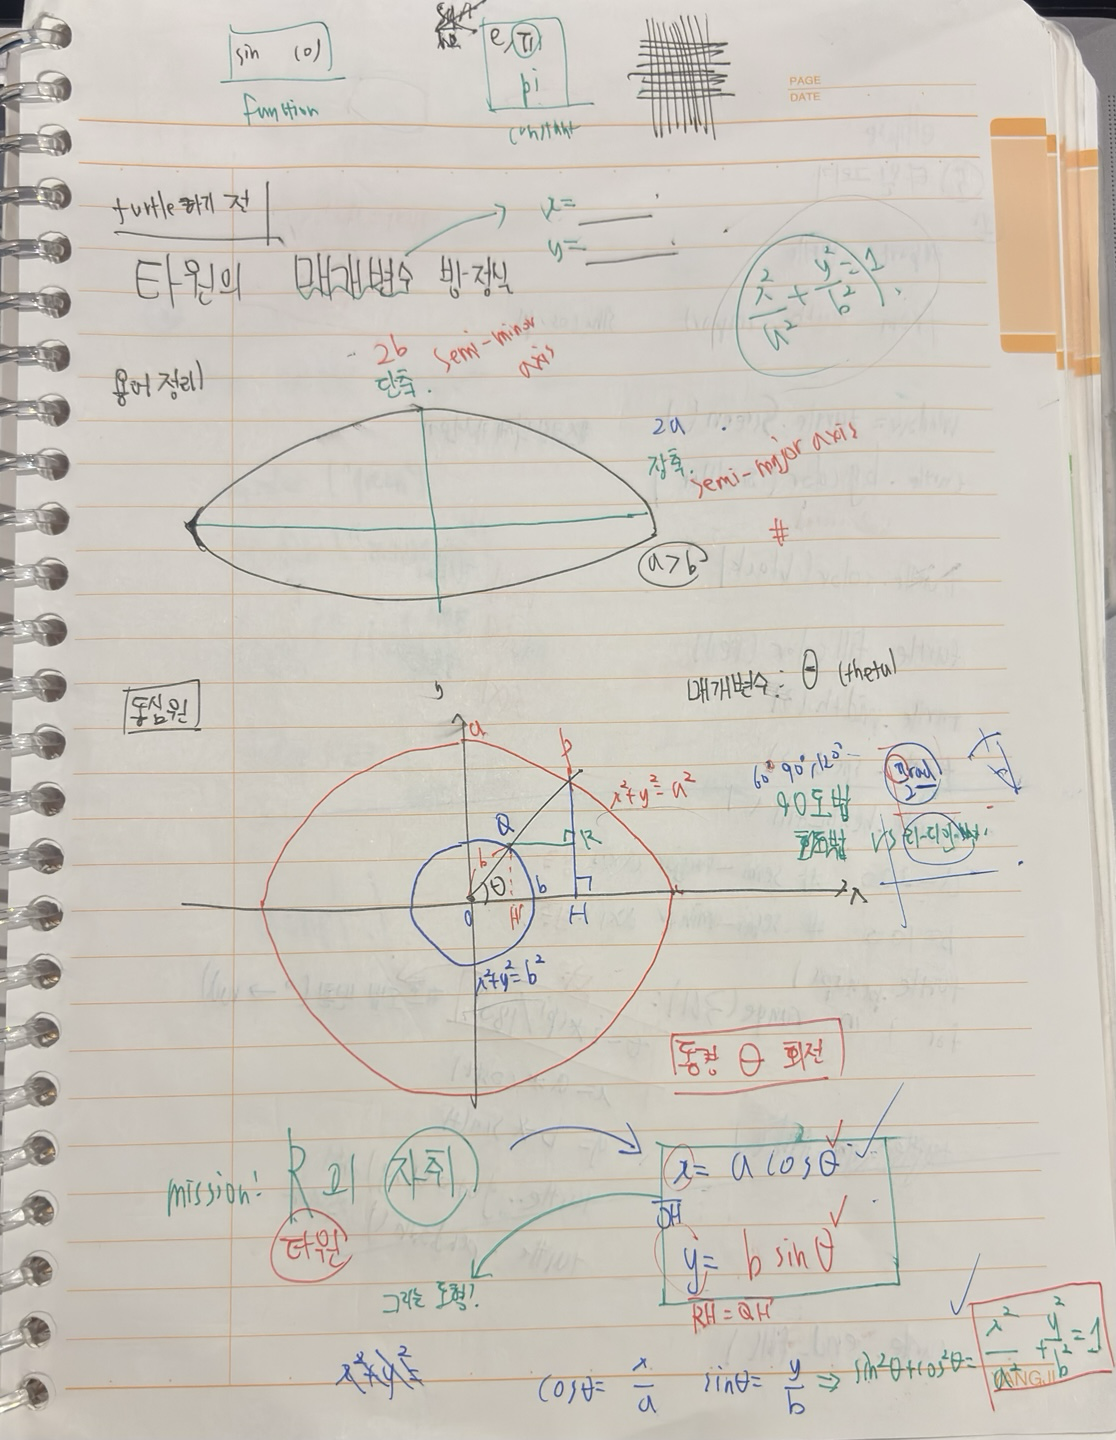 sin (0)
function
e, π
pi
constant
PAGE
DATE
turtle 하기 전
x=
y=
타원의 매개변수 방정식
x²/a² + y²/b² = 1
용어 정리
2b semi-minor axis
단축.
2a
장축. semi-major axis
#
a>b
매개변수: θ (theta)
동심원
a
P
x²+y²=a²
Q
R
b
θ
b
O
H'
H
x
x²+y²=b²
60° 90°, 120°
60도법
호도법 vs 라디안
π/2 rad
동경 θ 회전
mission: R의 자취
타원
x= a cosθ
OH
y= b sinθ
RH = QH'
그리는 도형?
x²+y²=
cosθ= x/a sinθ= y/b ⇒ sin²θ+cos²θ= x²/a² + y²/b² = 1